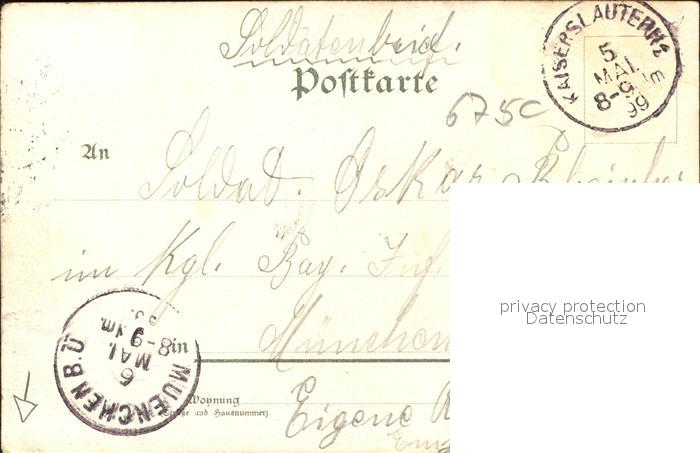 Soldatenbrief.
Postkarte
KAISERSLAUTERN 2
5
MAI.
8-
99
675C
An
Soldat. Oskar
im Kgl. Bay. Inf.
in
München
Wohnung
(Straße und Hausnummer)
Eigene
MUENCHEN B.Ü
6
MAI.
8-9 Vm.
privacy protection
Datenschutz